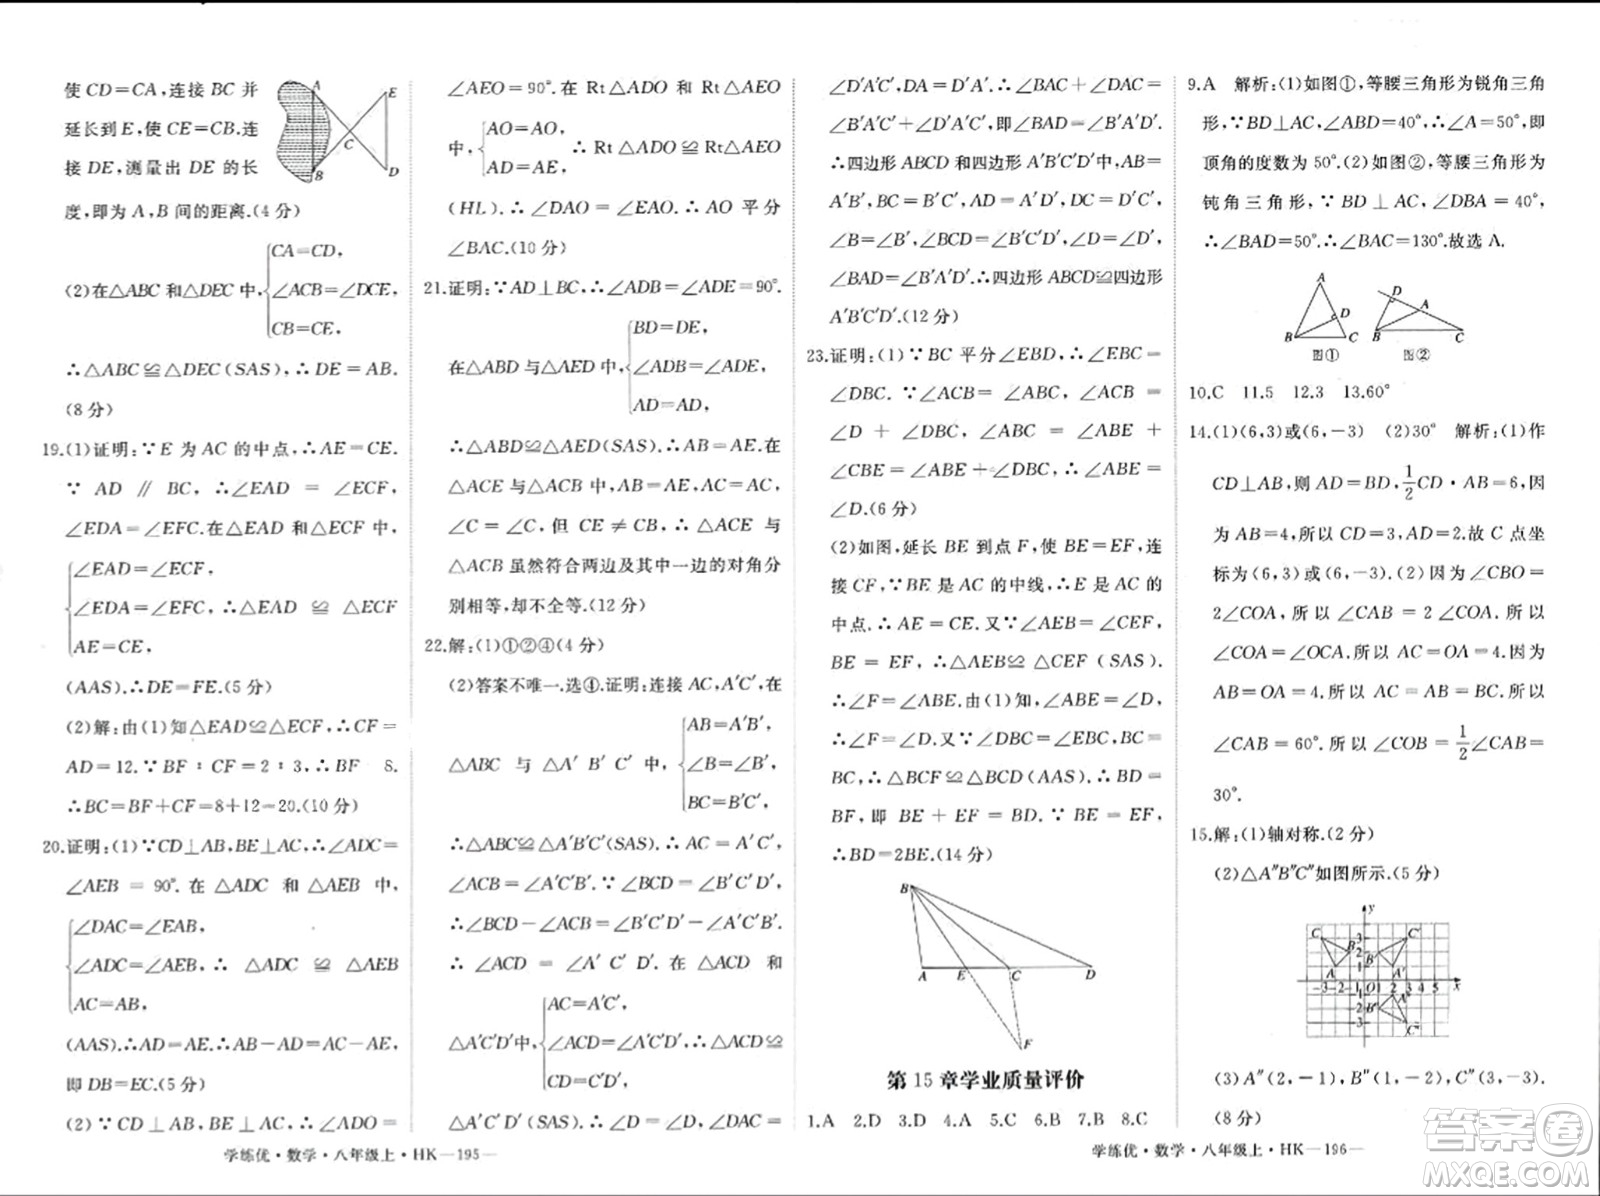 使 CD=CA,连接 BC 并
延长到 E,使 CE=CB.连
接 DE,测量出 DE 的长
度,即为 A,B 间的距离.(4 分)
A
E
C
B
D
(2)在△ABC 和△DEC 中,
CA=CD,
∠ACB=∠DCE,
CB=CE,
∴△ABC≌△DEC(SAS),∴DE=AB.
(8 分)
19.(1)证明:∵E 为 AC 的中点,∴AE=CE.
∵ AD ∥ BC,∴∠EAD = ∠ECF,
∠EDA=∠EFC.在△EAD 和△ECF 中,
∠EAD=∠ECF,
∠EDA=∠EFC,∴△EAD ≌ △ECF
AE=CE,
(AAS).∴DE=FE.(5 分)
(2)解:由(1)知△EAD≌△ECF,∴CF=
AD=12.∵BF∶CF=2∶3,∴BF 8.
∴BC=BF+CF=8+12=20.(10 分)
20.证明:(1)∵CD⊥AB,BE⊥AC,∴∠ADC=
∠AEB = 90°.在 △ADC 和 △AEB 中,
∠DAC=∠EAB,
∠ADC=∠AEB,∴△ADC ≌ △AEB
AC=AB,
(AAS).∴AD=AE.∴AB-AD=AC-AE,
即 DB=EC.(5 分)
(2)∵ CD ⊥AB, BE ⊥AC,∴ ∠ADO =
∠AEO=90°.在 Rt△ADO 和 Rt△AEO
中,
AO=AO,
AD=AE,
∴ Rt△ADO≌Rt△AEO
(HL).∴∠DAO=∠EAO.∴AO 平分
∠BAC.(10 分)
21.证明:∵AD⊥BC,∴∠ADB=∠ADE=90°.
在△ABD 与△AED 中,
BD=DE,
∠ADB=∠ADE,
AD=AD,
∴△ABD≌△AED(SAS).∴AB=AE.在
△ACE 与△ACB 中,AE=AB,AC=AC,
∠C=∠C,但 CE≠CB,∴△ACE 与
△ACB 虽然符合两边及其中一边的对角分
别相等,却不全等.(12 分)
22.解:(1)①②④(4 分)
(2)答案不唯一.选④.证明:连接 AC,A′C′,在
△ABC 与 △A′B′C′ 中,
AB=A′B′,
∠B=∠B′,
BC=B′C′,
∴△ABC≌△A′B′C′(SAS).∴AC=A′C′,
∠ACB=∠A′C′B′.∵∠BCD=∠B′C′D′,
∴∠BCD-∠ACB=∠B′C′D′-∠A′C′B′.
∴ ∠ACD = ∠A′C′D′.在 △ACD 和
△A′C′D′中,
AC=A′C′,
∠ACD=∠A′C′D′,∴△ACD≌
CD=C′D′,
△A′C′D′(SAS).∴∠D=∠D′,∠DAC=
∠D′A′C′,DA=D′A′.∴∠BAC+∠DAC=
∠B′A′C′+∠D′A′C′,即∠BAD=∠B′A′D′.
∴四边形 ABCD 和四边形 A′B′C′D′中,AB=
A′B′,BC=B′C′,AD=A′D′,CD=C′D′,
∠B=∠B′,∠BCD=∠B′C′D′,∠D=∠D′,
∠BAD=∠B′A′D′.∴四边形 ABCD≌四边形
A′B′C′D′.(12 分)
23.证明:(1)∵BC 平分∠EBD,∴∠EBC=
∠DBC.∵∠ACB= ∠ABC,∠ACB=
∠D + ∠DBC,∠ABC = ∠ABE +
∠CBE =∠ABE+∠DBC,∴∠ABE=
∠D.(6 分)
(2)如图,延长 BE 到点 F,使 BE=EF,连
接 CF,∵BE 是 AC 的中线,∴E 是 AC 的
中点.∴AE=CE.又∵∠AEB=∠CEF,
BE=EF,∴△AEB≌△CEF(SAS).
∴∠F=∠ABE.由(1)知,∠ABE=∠D,
∴∠F=∠D.又∵∠DBC=∠EBC,BC=
BC,∴△BCF≌△BCD(AAS).∴BD=
BF,即 BE+EF=BD.∵BE=EF,
∴BD=2BE.(14 分)
B
A
E
C
D
F
第 15 章学业质量评价
1.A 2.D 3.D 4.A 5.C 6.B 7.B 8.C
9.A 解析:(1)如图①,等腰三角形为锐角三角
形,∵BD⊥AC,∠ABD=40°,∴∠A=50°,即
顶角的度数为 50°.(2)如图②,等腰三角形为
钝角三角形,∵BD⊥AC,∠DBA=40°,
∴∠BAD=50°.∴∠BAC=130°.故选 A.
A
D
B
C
图①
D
A
B
C
图②
10.C 11.5 12.3 13.60°
14.(1)(6,3)或(6,-3) (2)30° 解析:(1)作
CD⊥AB,则 AD=BD,1/2CD·AB=6,因
为 AB=4,所以 CD=3,AD=2.故 C 点坐
标为(6,3)或(6,-3).(2)因为∠CBO=
2∠COA,所以∠CAB=2∠COA,因为
∠COA=∠OCA,所以 AC=OA=4.因为
AB=OA=4,所以 AC=AB=BC.所以
∠CAB=60°.所以∠COB=1/2∠CAB=
30°.
15.解:(1)轴对称.(2 分)
(2)△A″B″C″如图所示.(5 分)
y
C
C′
B
B′
A
A′
-3-2-1O12345
x
3
2
1
-1
-2
-3
A″
B″
C″
(3)A″(2,-1),B″(1,-2),C″(3,-3).
(8 分)
学练优·数学·八年级上·HK—195—
学练优·数学·八年级上·HK—196—
答案圈
MXQE.COM